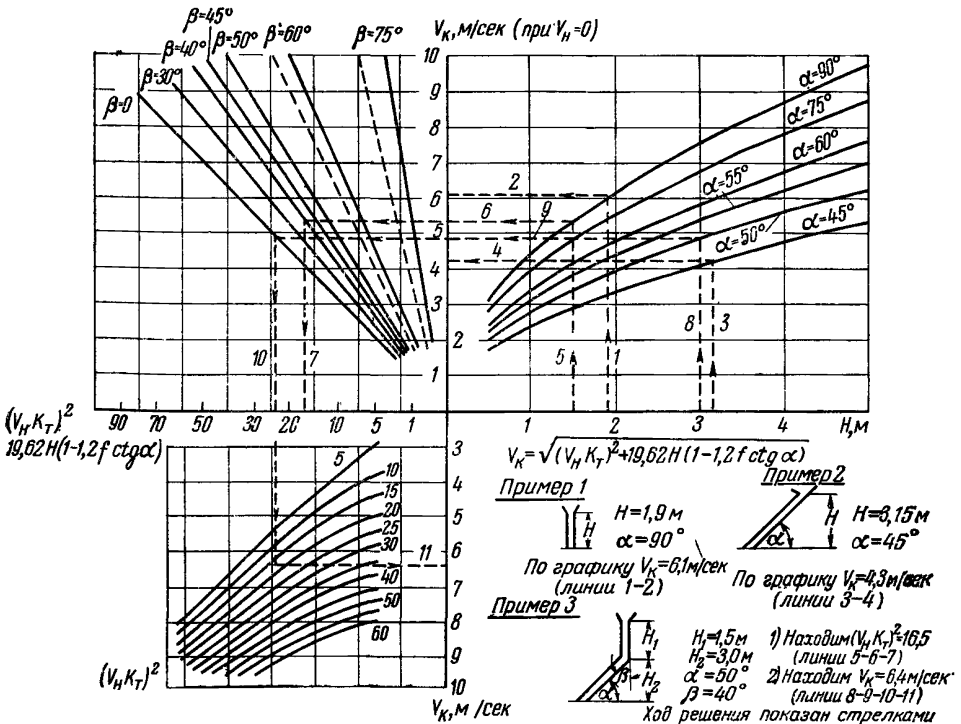 β=45°
β=40°
β=50°
β=60°
β=75°
β=30°
β=0
Vк, м/сек (при Vн=0)
10
9
8
7
6
5
4
3
2
1
α=90°
α=75°
α=60°
α=55°
α=50°
α=45°
2
6
9
4
8
3
5
1
10
7
90
70
50
30
20
10
5
1
1
2
3
4
H,м
(Vн Kт)²
19,62H(1-1,2f ctgα)
3
4
5
6
7
8
9
10
5
10
15
20
25
30
40
50
60
11
(Vн Kт)²
Vк, м/сек
Vк=√(Vн Kт)²+19,62H(1-1,2f ctg α)
Пример 1
H
H=1,9м
α=90°
По графику Vк=6,1м/сек
(линии 1-2)
Пример 2
H
α
H=3,15м
α=45°
По графику Vк=4,3м/сек
(линии 3-4)
Пример 3
H₁
H₂
β
α
H₁=1,5м
H₂=3,0м
α=50°
β=40°
1) Находим(Vн Kт)²=16,5
(линии 5-6-7)
2) Находим Vк=6,4м/сек
(линии 8-9-10-11)
Ход решения показан стрелками